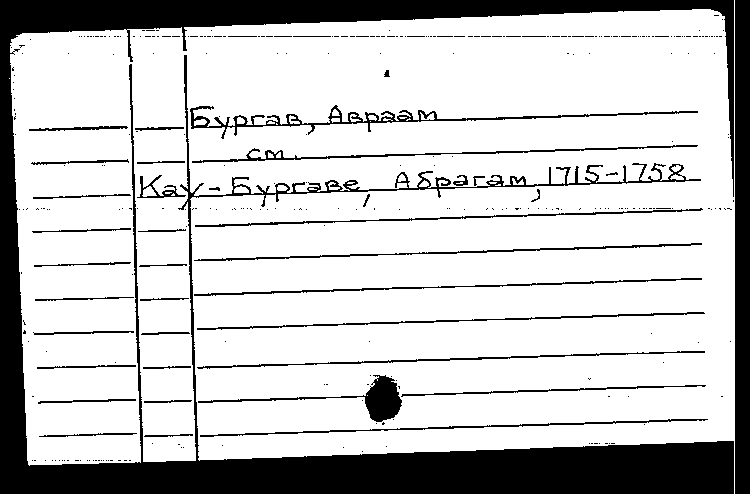 Бургав, Авраам
см.
Кау-Бургаве, Абрагам, 1715-1758